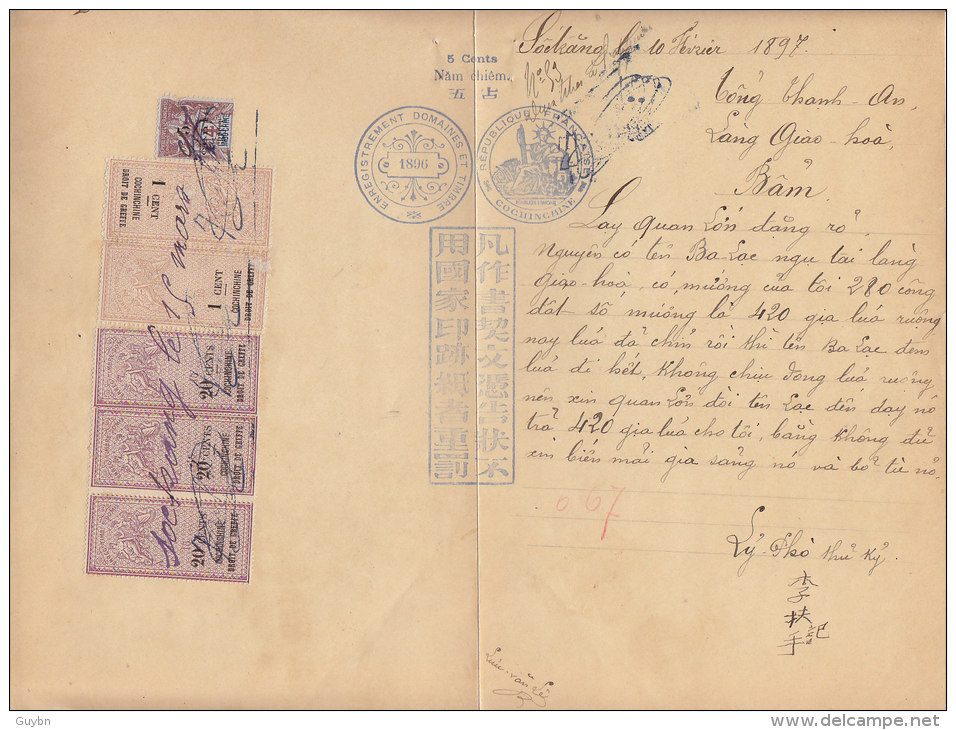 Sóctrăng, le 10 Février 1897.
5 Cents
Năm chiêm.
五占
No. 53
ENREGISTREMENT DOMAINES ET TIMBRE
1896
RÉPUBLIQUE FRANÇAISE
COCHINCHINE
Tổng Thanh-An,
Làng Giao-hoà,
Bẩm
Lạy quan Lớn đặng rỏ,
Nguyên có tên Ba-Lạc ngụ tại làng
Giao-hoà, có mướng của tôi 280 công
đất số mướng là 420 gia luá ruông
nay luá đà chín rồi thì tên Ba Lạc đem
luá đi hết, không chiụ đong luá ruông,
nên xin quan Lớn đòi tên Lạc đến dạy nó
trả 420 gia luá cho tôi, bằng không đủ
xin biên mải gia sảng nó và bỏ tù nó,
凡作書契文憑告狀不
用國家印跡稱者重罰
067
Lý-Phò thủ ký.
李扶手記
Lưu-văn-Lê
1 CENT
COCHINCHINE
DROIT DE GREFFE
1 CENT
COCHINCHINE
DROIT DE GREFFE
20 CENTS
COCHINCHINE
DROIT DE GREFFE
20 CENTS
COCHINCHINE
DROIT DE GREFFE
20 CENTS
COCHINCHINE
DROIT DE GREFFE
Soctrang le 15 mars
Guybn
www.delcampe.net